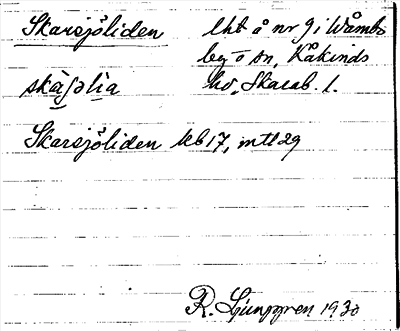 Skarsjöliden lht å nr 9 i Wåmbs
by o sn, Kåkinds
skàʃəlìa hd, Skarab. l.
Skarsjöliden kb 17, mtl 29
R. Ljunggren 1930